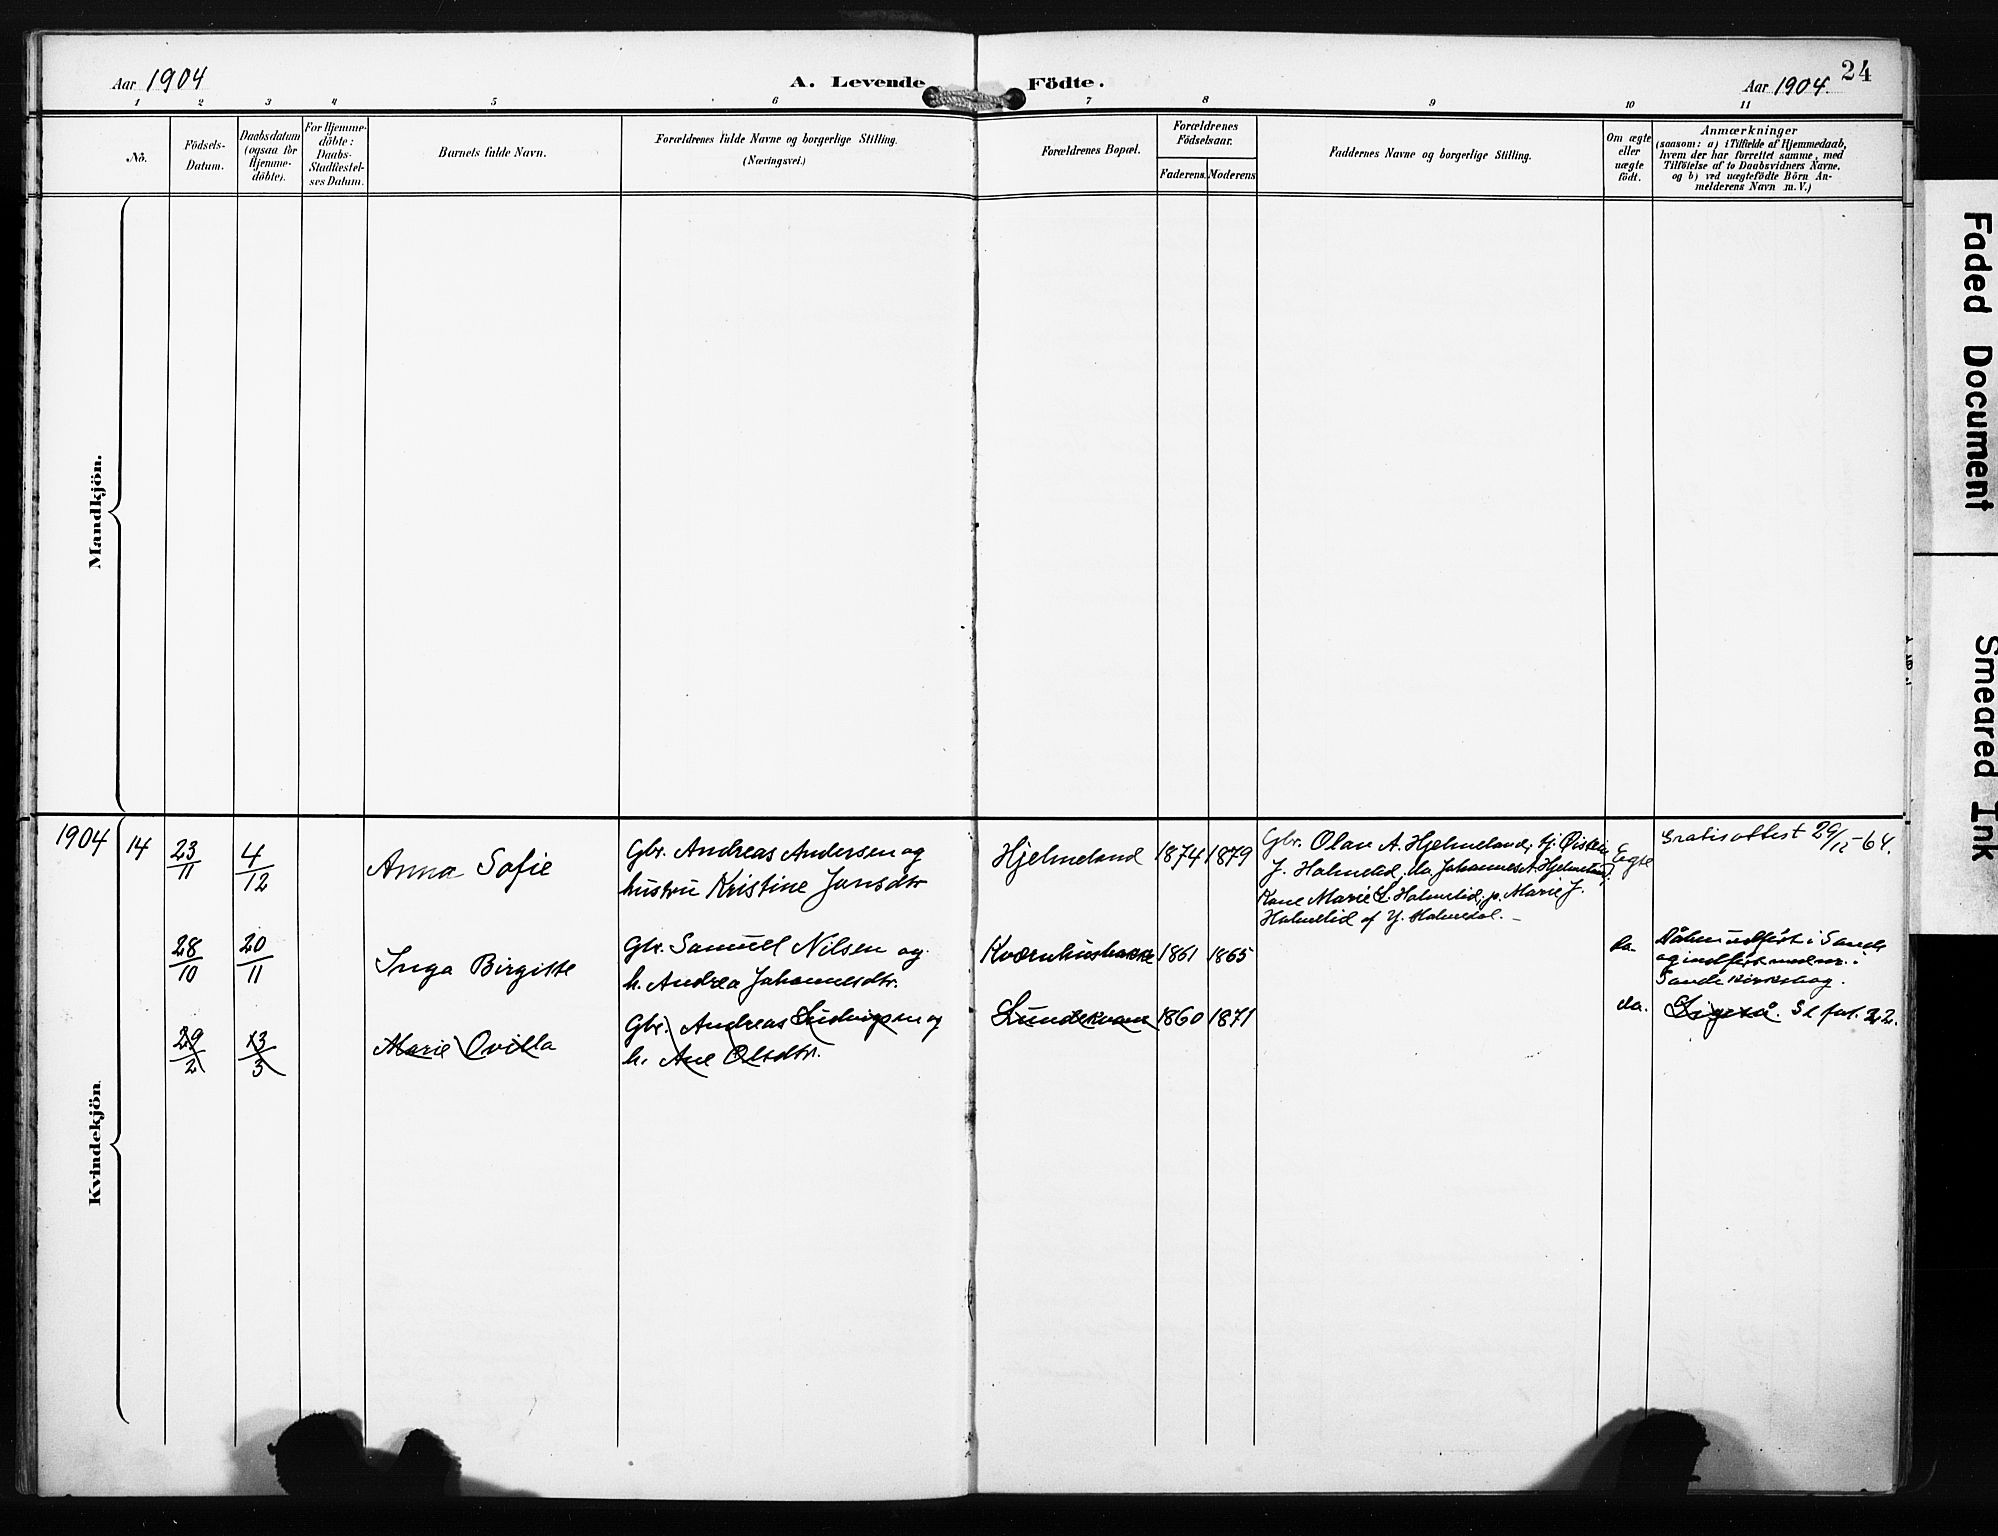 Aar 1904
A. Levende Födte.
Aar 1904.
24
1 2 3 4 5 6 7 8 9 10 11
No.
Födsels-
Datum.
Daabsdatum
(ogsaa for
Hjemme-
döbte).
For Hjemme-
döbte:
Daabs-
Stadfæstel-
ses Datum.
Barnets fulde Navn.
Forældrenes fulde Navne og borgerlige Stilling.
(Næringsvei.)
Forældrenes Bopæl.
Forældrenes
Födselsaar.
Faderens.
Moderens
Faddernes Navne og borgerlige Stilling.
Om ægte
eller
uægte
födt.
Anmærkninger
(saasom: a) i Tilfælde af Hjemmedaab,
hvem der har forrettet samme, med
Tilföielse af to Daabsvidners Navne,
og b) ved uægtefödte Börn An-
melderens Navn m.V.)
Mandkjön.
1904
14
23/11
4/12
Anna Sofie
Gbr. Andreas Andersen og
hustru Kristine Jonsdtr
Hjelmeland
1874
1879
Gbr. Olav A. Hjelmeland,
J. Holmelid, Johannes A. Hjelmeland,
Kone Marie Holmelid, p. Marie J.
Holmelid af
Ægte
Gratisattest 29/12-64.
28/10
20/11
Inga Birgitte
Gbr. Samuel Nilsen og
h. Andrea Johannesdtr.
Kværnhusbakke
1861
1865
Da.
i Sande
Sande kirkebog.
29/2
13/3
Marie Ovilla
Gbr. Andreas Ludvigsen og
h. Ane Olsdtr.
Lundekvam
1860
1871
da.
Ligeså. Se fol. 22.
Kvindekjön.
Faded Document
Smeared Ink